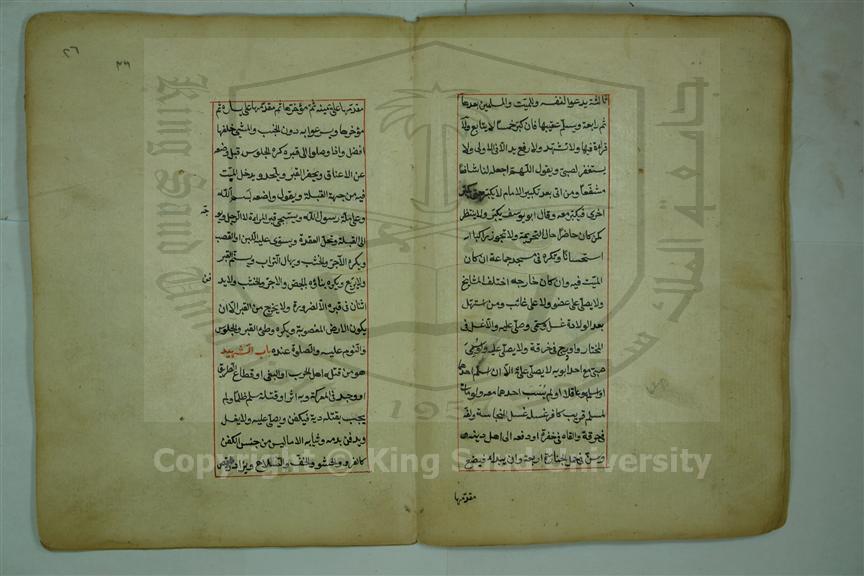 ثالثة يدعو لنفسه وللميت وللمسلمين بعدها
ثم رابعة ويسلم عقيبها فان كبر خمسا لا يتابع ولا
قراءة فيها ولا تشهد ولا رفع يد الا في الاولى ولا
يستغفر لصبي ويقول اللهم اجعله لنا شافعا
مشفعا ومن اتى بعد تكبير الامام لا يكبر حتى يكبر
اخرى فيكبر معه وقال ابو يوسف يكبر ولا ينتظر
كمن كان حاضرا حال التحريمة ولا تجوز راكبا
استحسانا وتكره في مسجد جماعة ان كان
الميت فيه وان كان خارجه اختلف المشايخ
ولا يصلى على عضو ولا على غائب ومن استهل
بعد الولادة غسل وسمي وصلي عليه والا غسل في
المختار وادرج في خرقة ولا يصلى عليه
صبي مع احد ابويه لا يصلى عليه الا ان اسلم احدهما
او اسلم هو عاقلا او لم يسب احدهما معه ولو مات
لمسلم قريب كافر غسله غسل النجاسة ولفه
في خرقة والقاه في حفرة او دفعه الى اهل دينه
وسن في حمل الجنازة اربعة وان يبدأ فيضع
مقدمها
٢٦
٢٦
مقدمها على يمينه ثم مؤخرها ثم مقدمها على يساره ثم
مؤخرها ويسرعوا به دون الخبب والمشي خلفها
افضل واذا وصلوا الى قبره كره الجلوس قبل وضعه
عن الاعناق ويحفر القبر ويلحد ويدخل الميت
فيه من جهة القبلة ويقول واضعه بسم الله
وعلى ملة رسول الله ويسجى قبر المرأة لا الرجل ويو
جه
الى القبلة وتحل العقدة ويسوى عليه اللبن او القصب
ويكره الآجر والخشب ويهال التراب ويسنم القبر
ولا يربع ويكره بناؤه بالجص والآجر والخشب ولا يد
فن
اثنان في قبر الا لضرورة ولا يخرج من القبر الا ان
يكون الارض المغصوبة ويكره وطئ القبر والجلوس
والنوم عليه والصلوة عنده باب الشهيد
هو من قتله اهل الحرب او البغي او قطاع الطريق
او وجد في المعركة وبه اثر او قتله مسلم ظلما ولم
يجب بقتله دية فيكفن ويصلى عليه ولا يغسل
ويدفن بدمه وثيابه الا ما ليس من جنس الكفن
كالفرو والحشو والخف والسلاح ويزاد
Copyright © King Saud University
King Saud University
جامعة الملك سعود
195